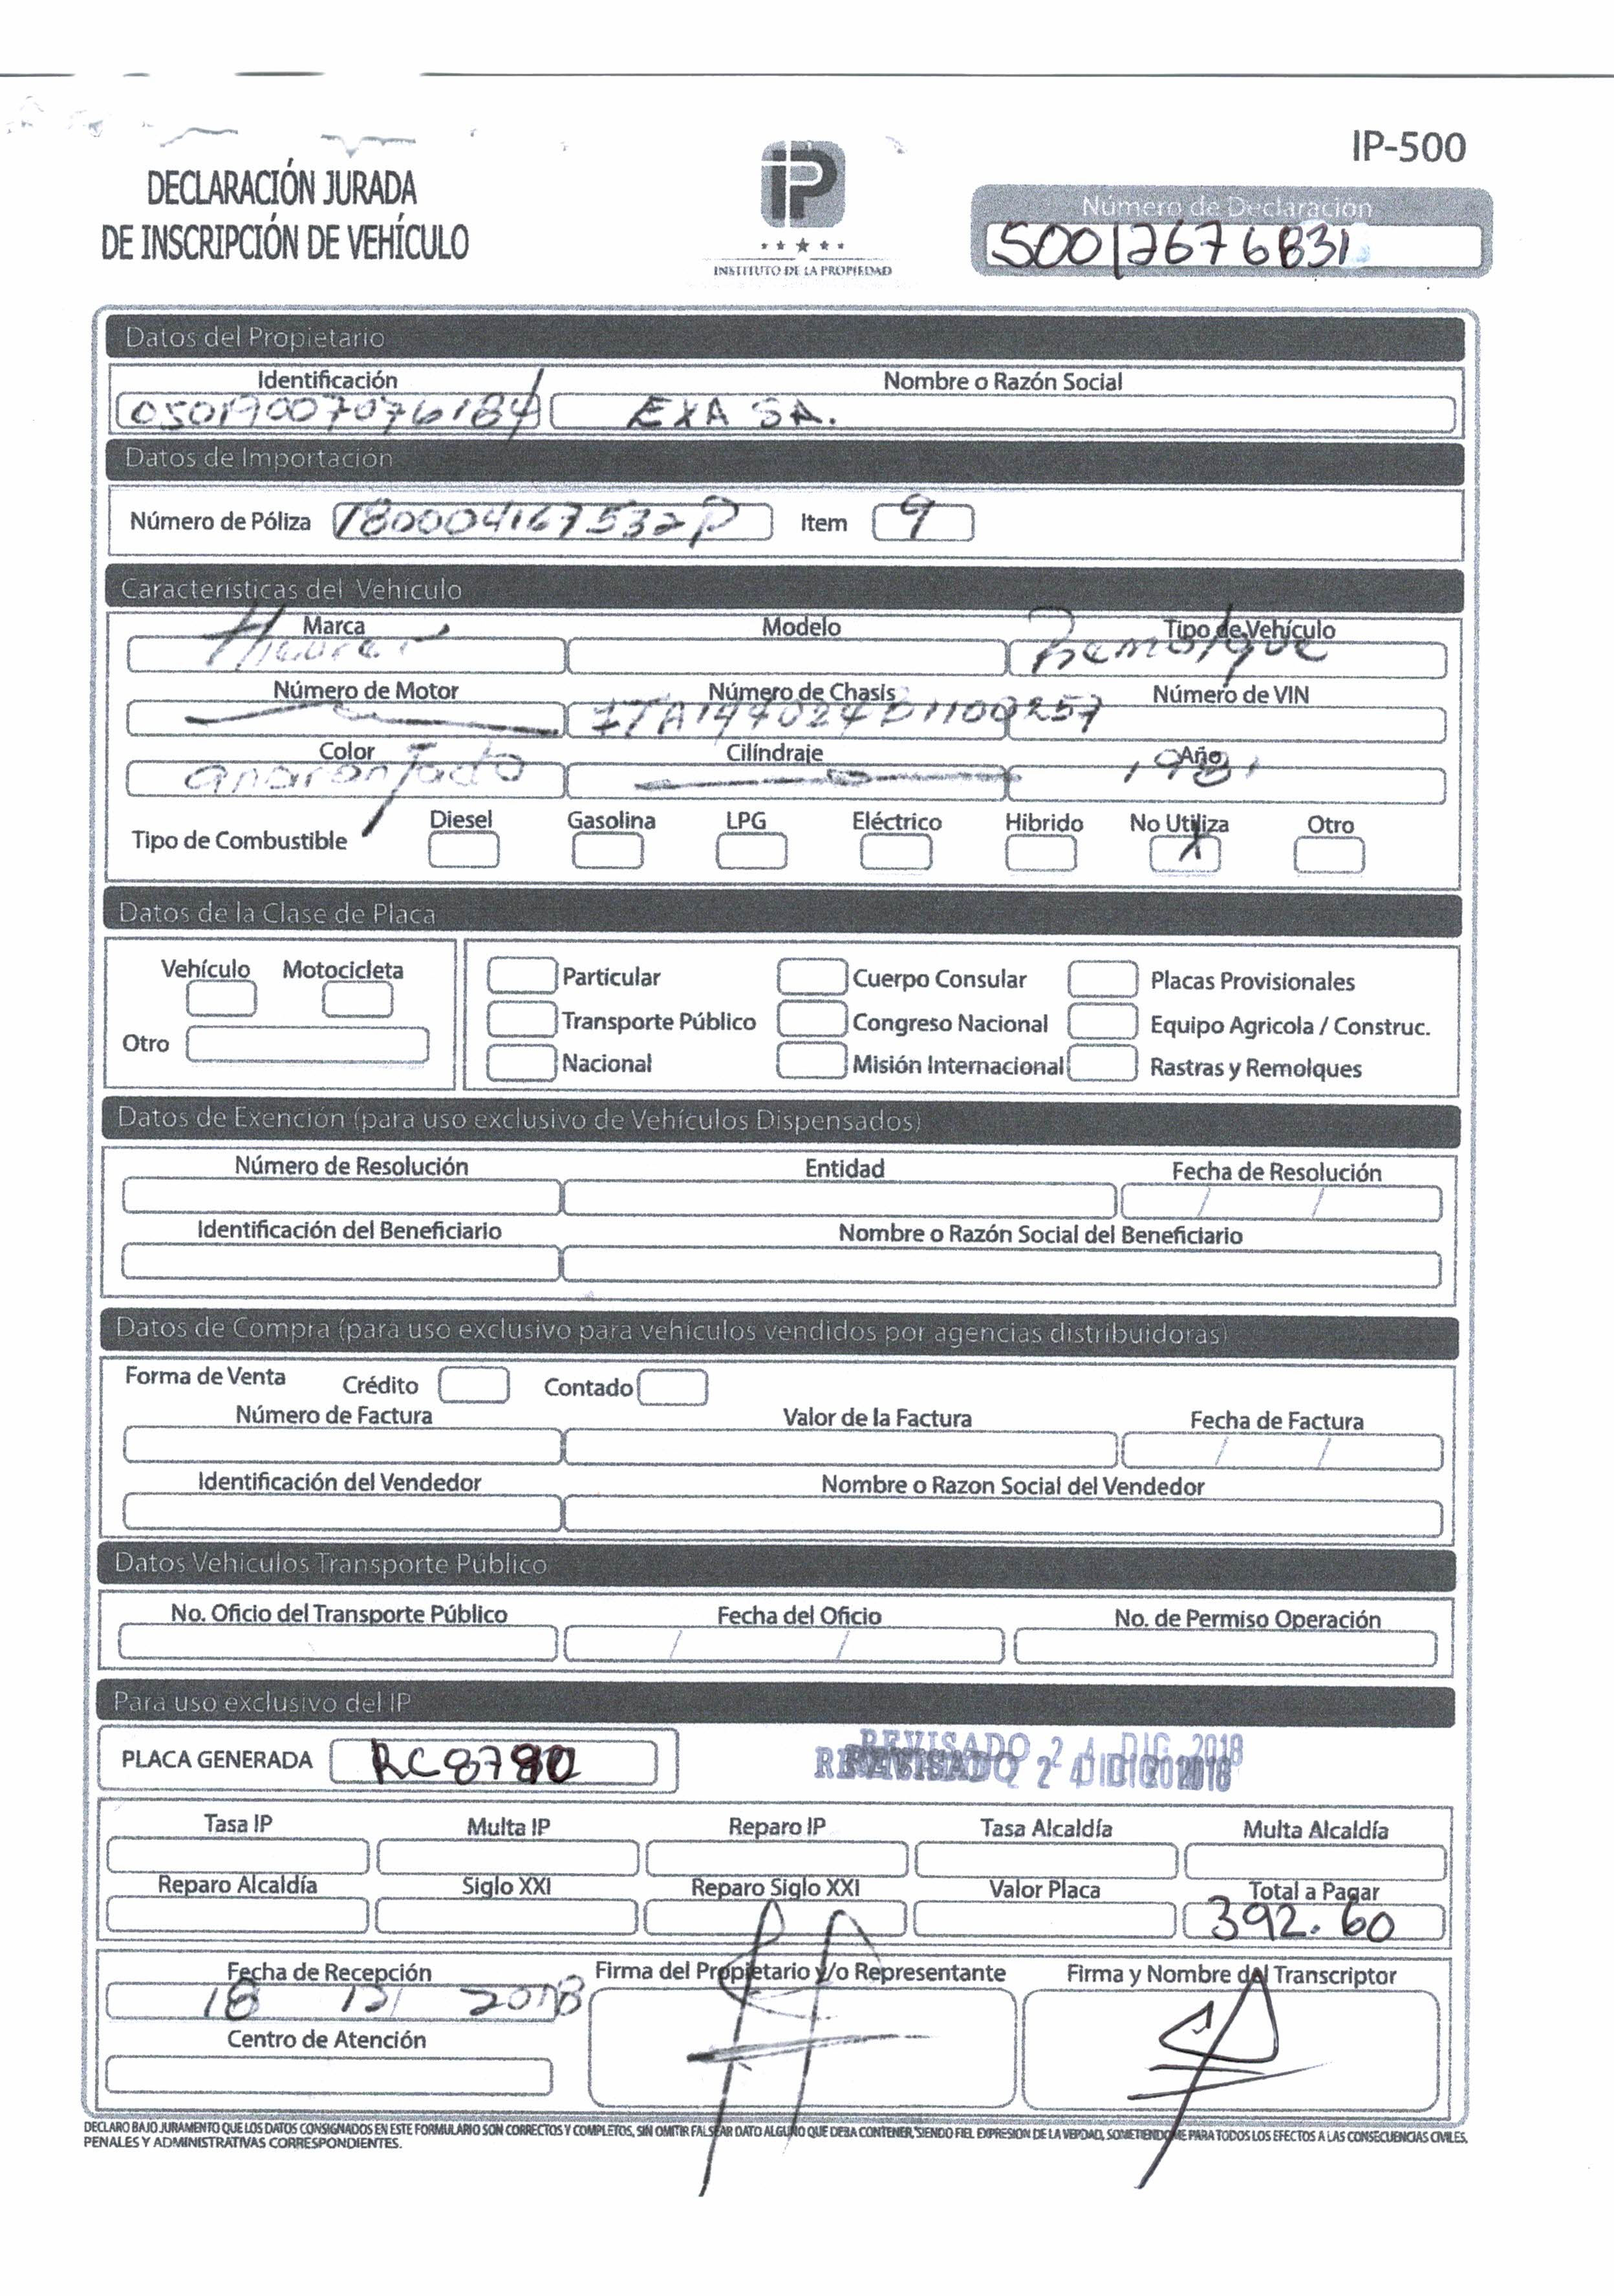 IP-500
DECLARACIÓN JURADA
DE INSCRIPCIÓN DE VEHÍCULO
INSTITUTO DE LA PROPIEDAD
Número de Declaración
50017676831
Datos del Propietario
Identificación Nombre o Razón Social
05019007076184 EXA SA.
Datos de Importación
Número de Póliza 180004167532P Item 9
Características del Vehículo
Marca Modelo Tipo de Vehículo
Remolque
Número de Motor Número de Chasis Número de VIN
Color Cilíndraje Año
anaranjado 1981
Tipo de Combustible Diesel Gasolina LPG Eléctrico Hibrido No Utiliza Otro
X
Datos de la Clase de Placa
Vehículo Motocicleta
Otro
Particular Cuerpo Consular Placas Provisionales
Transporte Público Congreso Nacional Equipo Agricola / Construc.
Nacional Misión Internacional Rastras y Remolques
Datos de Exención (para uso exclusivo de Vehículos Dispensados)
Número de Resolución Entidad Fecha de Resolución
/ /
Identificación del Beneficiario Nombre o Razón Social del Beneficiario
Datos de Compra (para uso exclusivo para vehículos vendidos por agencias distribuidoras)
Forma de Venta Crédito Contado
Número de Factura Valor de la Factura Fecha de Factura
/ /
Identificación del Vendedor Nombre o Razon Social del Vendedor
Datos Vehículos Transporte Público
No. Oficio del Transporte Público Fecha del Oficio No. de Permiso Operación
/ /
Para uso exclusivo del IP
PLACA GENERADA RC8780
REVISADO 24 DIC 2018
REVISADO 24 DIC 2018
Tasa IP Multa IP Reparo IP Tasa Alcaldía Multa Alcaldía
Reparo Alcaldía Siglo XXI Reparo Siglo XXI Valor Placa Total a Pagar
392.60
Fecha de Recepción Firma del Propietario y/o Representante Firma y Nombre del Transcriptor
18 12 2018
Centro de Atención
DECLARO BAJO JURAMENTO QUE LOS DATOS CONSIGNADOS EN ESTE FORMULARIO SON CORRECTOS Y COMPLETOS, SIN OMITIR FALSEAR DATO ALGUNO QUE DEBA CONTENER, SIENDO FIEL EXPRESION DE LA VERDAD, SOMETIENDOME PARA TODOS LOS EFECTOS A LAS CONSECUENCIAS CIVILES,
PENALES Y ADMINISTRATIVAS CORRESPONDIENTES.